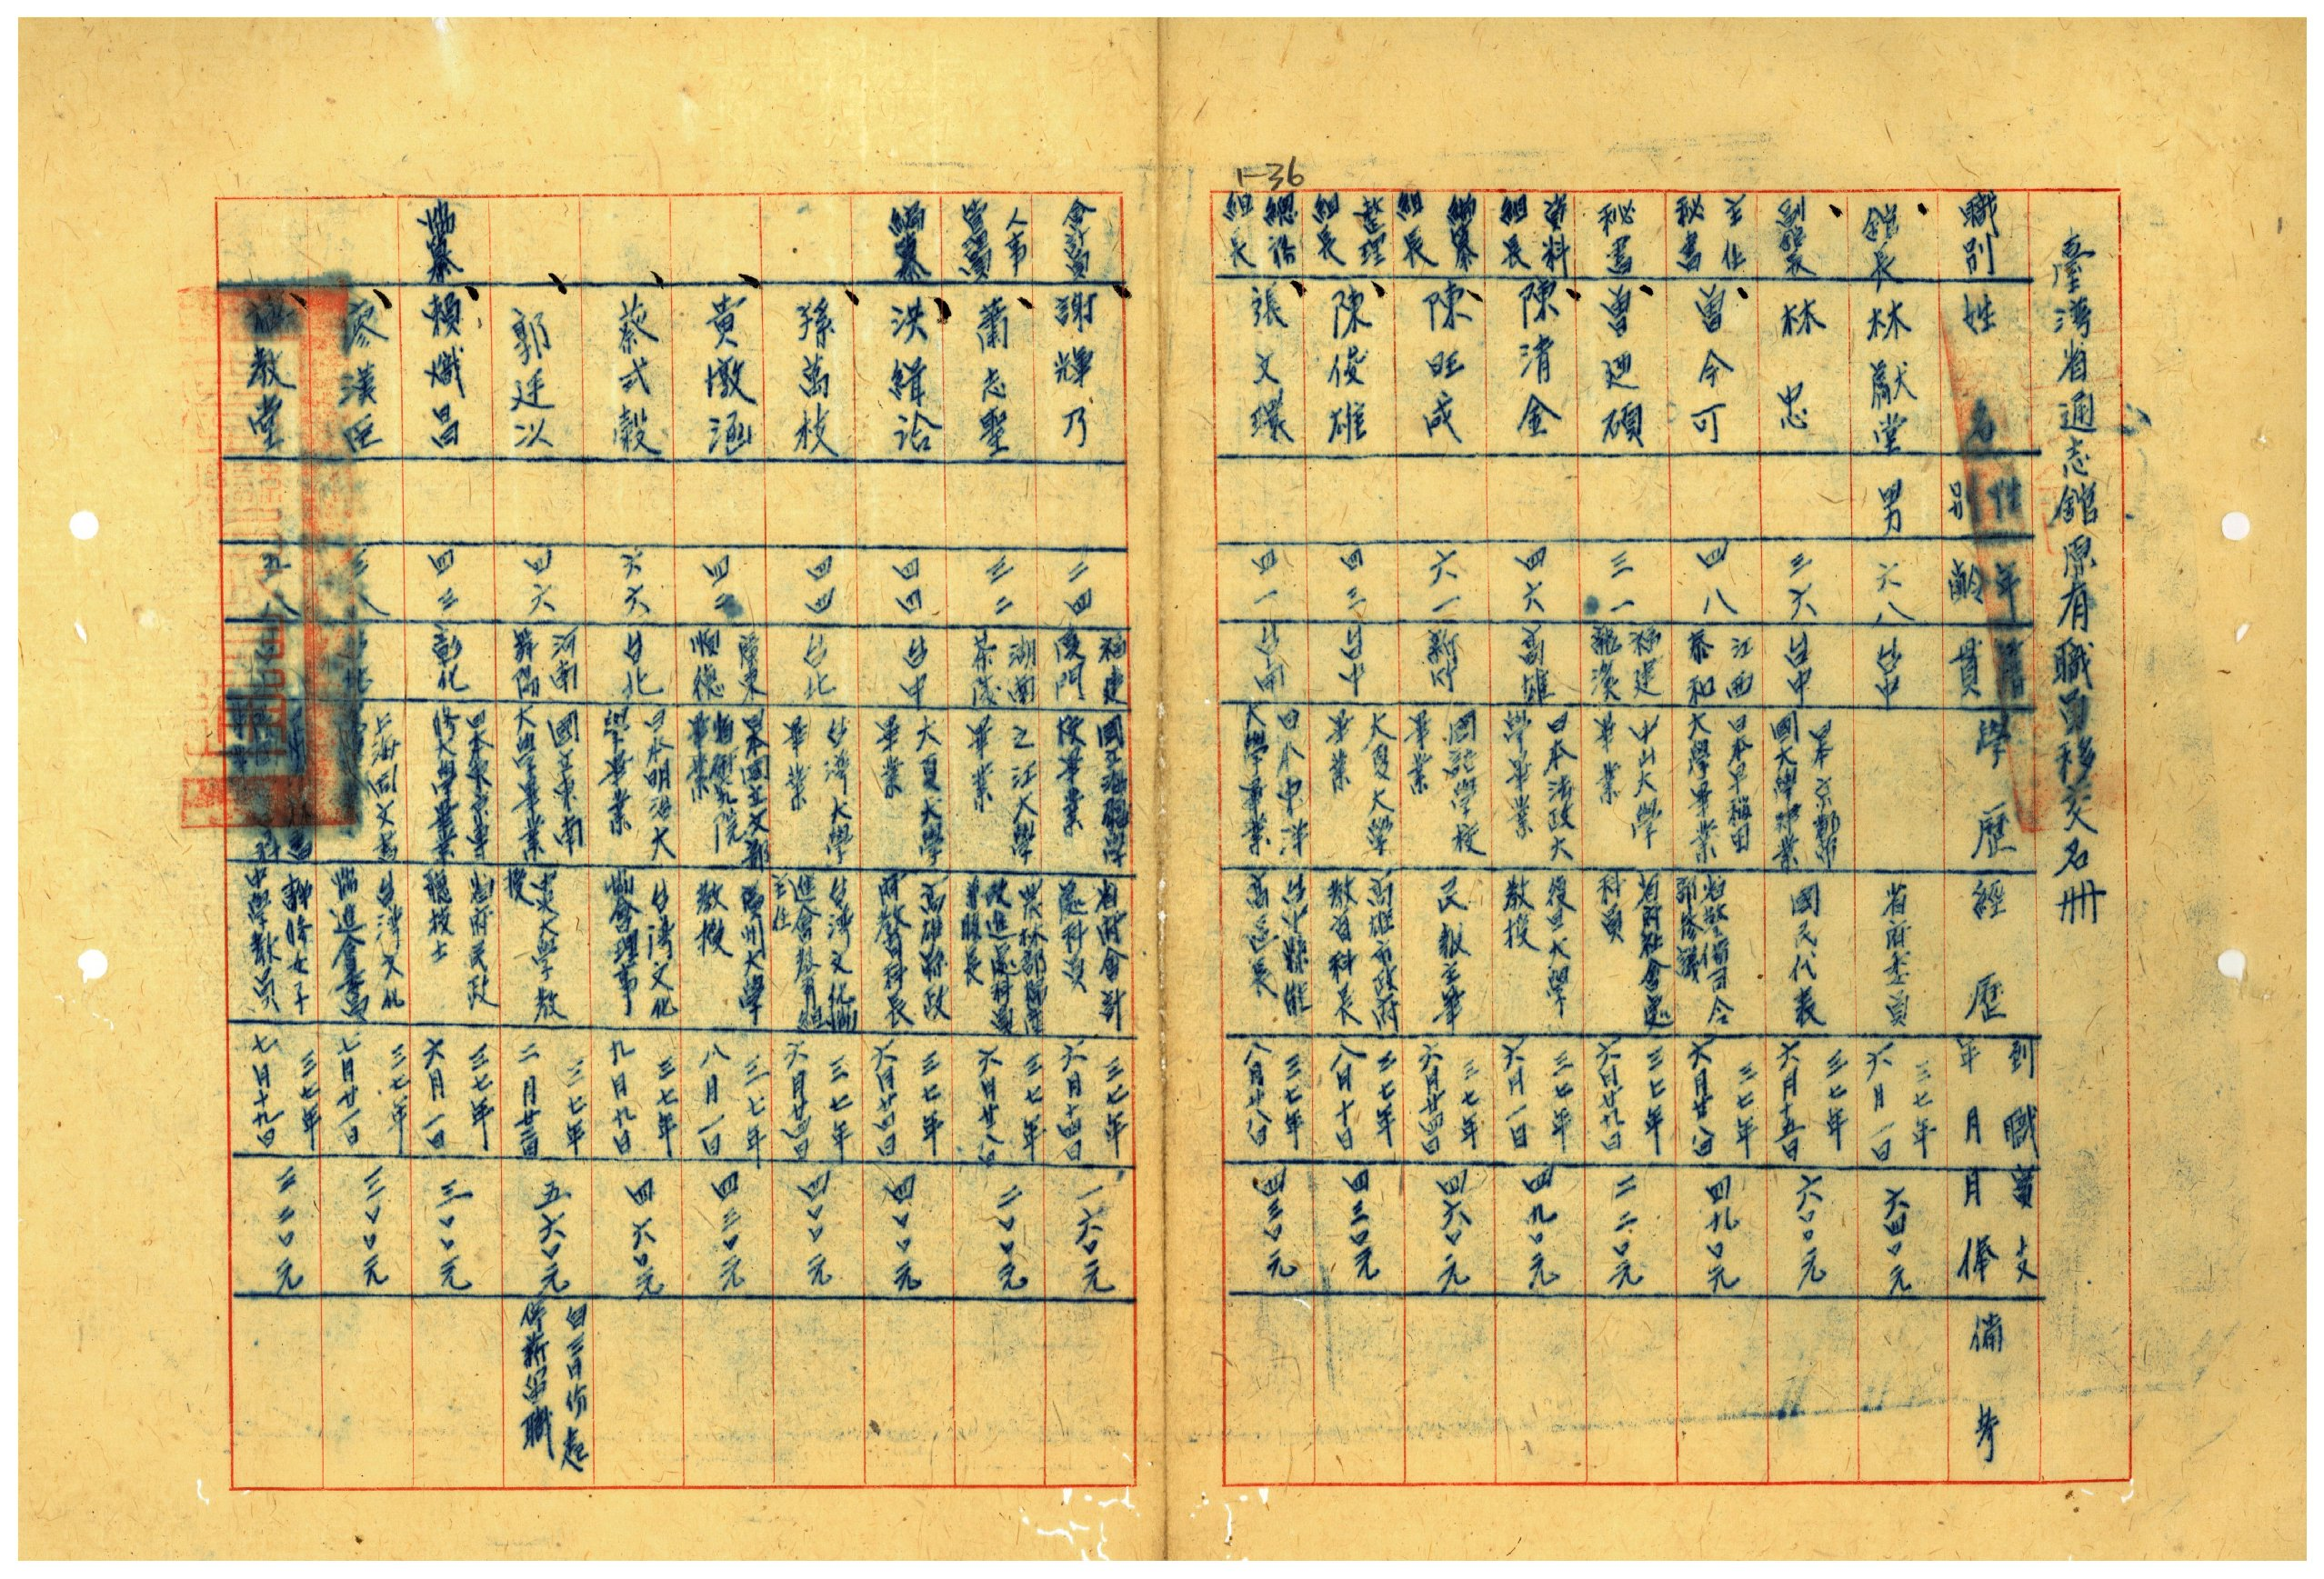 臺灣省通志館原有職員移交名冊
職別 姓名 性別 年齡 籍貫 學歷 經歷 到職年月 實支月俸 備考
館長 林獻堂 男 六八 台中 省府委員 三七年六月一日 六四〇元
副館長 林忠 三六 台中 日本京都帝國大學畢業 國民代表 三七年六月十五日 六〇〇元
主任秘書 曾今可 四八 江西泰和 日本早稻田大學畢業 省警備司令部參議 三七年六月廿八日 四九〇元
秘書 曾迺碩 三一 福建龍溪 中山大學畢業 省府社會處科員 三七年六月廿九日 二二〇元
資料組長 陳清金 四六 高雄 日本法政大學畢業 復旦大學教授 三七年六月一日 四九〇元
編纂組長 陳旺成 六一 新竹 國語學校畢業 民報主筆 三七年六月廿四日 四六〇元
整理組長 陳俊雄 四三 台中 大夏大學畢業 高雄市政府教育科長 三七年八月十日 四三〇元
總務組長 張文環 四一 台南 日本東洋大學畢業 台中縣能高區長 三七年八月廿八日 四三〇元
1-36
會計員 謝輝乃 二四 福建廈門 校畢業 省府會計處科員 三七年六月十四日 一六〇元
人事管理員 蕭志聖 三二 湖南茶陵 之江大學畢業 三七年六月廿八日 二〇〇元
編纂 洪緝洽 四四 台中 大夏大學畢業 高雄縣政府教育科長 三七年六月廿四日 四〇〇元
孫萬枝 四四 台北 台灣大學畢業 台灣文化協進會教育組主任 三七年六月廿四日 四〇〇元
黃墩涵 四二 廣東順德 畢業 廣州大學教授 三七年八月一日 四三〇元
蔡式穀 六六 台北 日本明治大學畢業 台灣文化協會理事 三七年九月九日 四六〇元
郭廷以 四六 河南舞陽 國立東南大學畢業 中央大學教授 三七年二月廿三日 五六〇元 自三月份起停薪留職
編纂 賴熾昌 四三 彰化 日本東京專修大學畢業 省府民政廳技士 三七年六月一日 三〇〇元
廖漢臣 三八 台北 上海同文書 台灣文化協進會委員 三七年七月廿一日 三〇〇元
教堂 五八 靜修女子中學教員 三七年七月十九日 三二〇元